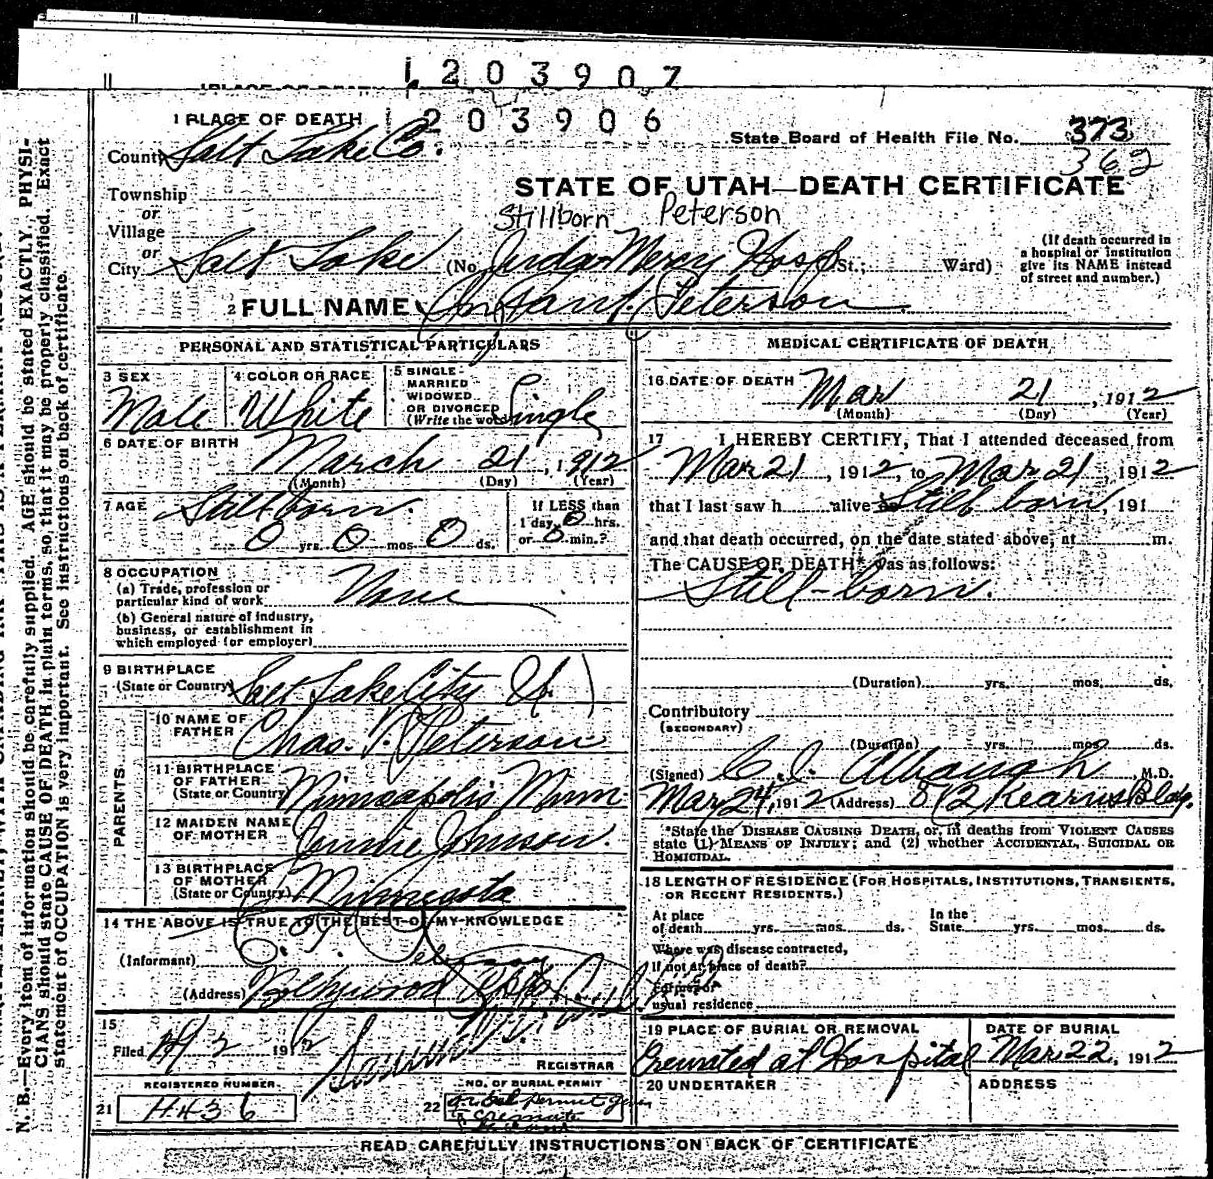 1203907
1203906
1 PLACE OF DEATH
State Board of Health File No. 373
362
County Salt Lake Co.
STATE OF UTAH—DEATH CERTIFICATE
Township
or
Village
or
Stillborn Peterson
City Salt Lake (No. Judge Mercy Hosp St.; Ward)
(If death occurred in a hospital or institution give its NAME instead of street and number.)
2 FULL NAME Infant Peterson
PERSONAL AND STATISTICAL PARTICULARS
3 SEX Male
4 COLOR OR RACE White
5 SINGLE MARRIED WIDOWED OR DIVORCED (Write the word) Single
6 DATE OF BIRTH March 21, 1912
(Month) (Day) (Year)
7 AGE Stillborn.
0 yrs. 0 mos. 0 ds.
If LESS than 1 day, 0 hrs. or 0 min.?
8 OCCUPATION
(a) Trade, profession or particular kind of work None
(b) General nature of industry, business, or establishment in which employed (or employer)
9 BIRTHPLACE
(State or Country) Salt Lake City U.
PARENTS
10 NAME OF FATHER Chas. Peterson
11 BIRTHPLACE OF FATHER (State or Country) Minneapolis Minn.
12 MAIDEN NAME OF MOTHER Johnson.
13 BIRTHPLACE OF MOTHER (State or Country) Minnesota
14 THE ABOVE IS TRUE TO THE BEST OF MY KNOWLEDGE
(Informant)
(Address)
15
Filed 4/2 1912
REGISTRAR
REGISTERED NUMBER
21 H436
NO. OF BURIAL PERMIT
22 permit
cremate
MEDICAL CERTIFICATE OF DEATH
16 DATE OF DEATH Mar 21, 1912
(Month) (Day) (Year)
17 I HEREBY CERTIFY, That I attended deceased from
Mar 21, 1912, to Mar 21, 1912
that I last saw h alive Still born, 191
and that death occurred, on the date stated above, at m.
The CAUSE OF DEATH* was as follows:
Still-born.
(Duration) yrs. mos. ds.
Contributory
(SECONDARY)
(Duration) yrs. mos. ds.
(Signed) Albaugh M.D.
Mar 24, 1912 (Address) 812 Kearns Bldg.
*State the DISEASE CAUSING DEATH, or, in deaths from VIOLENT CAUSES state (1) MEANS OF INJURY; and (2) whether ACCIDENTAL, SUICIDAL OR HOMICIDAL.
18 LENGTH OF RESIDENCE (FOR HOSPITALS, INSTITUTIONS, TRANSIENTS, OR RECENT RESIDENTS.)
At place of death yrs. mos. ds. In the State yrs. mos. ds.
Where was disease contracted,
If not at place of death?
Former or
usual residence
19 PLACE OF BURIAL OR REMOVAL Cremated at Hospital
DATE OF BURIAL Mar 22, 1912
20 UNDERTAKER
ADDRESS
READ CAREFULLY INSTRUCTIONS ON BACK OF CERTIFICATE
N. B.—Every item of information should be carefully supplied. AGE should be stated EXACTLY. PHYSI-
CIANS should state CAUSE OF DEATH in plain terms, so that it may be properly classified. Exact
statement of OCCUPATION is very important. See instructions on back of certificate.